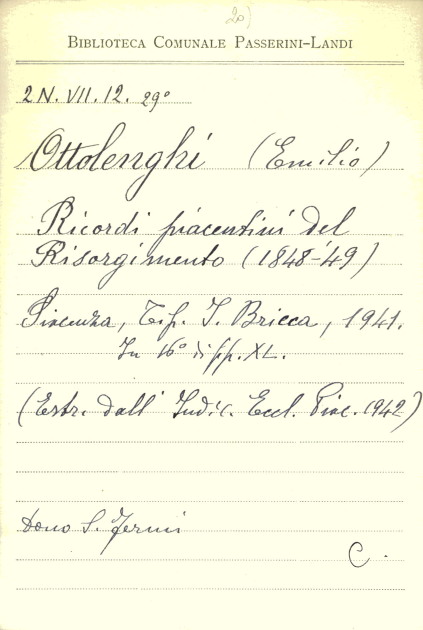 20)
BIBLIOTECA COMUNALE PASSERINI-LANDI
2N. VII. 12. 29º
Ottolenghi (Emilio)
Ricordi piacentini del
Risorgimento (1848-'49)
Piacenza, Tip. Bricca, 1941.
In 16º di pp. XL.
(Estr. dall' Indic. Eccl. Piac. 1942)
Dono S. Fermi
C.